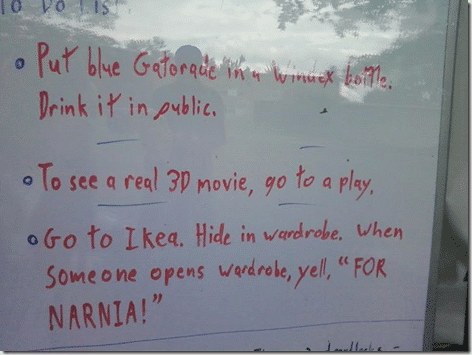 To Do Lis
• Put blue Gatorade in a Windex bottle.
Drink it in public.
• To see a real 3D movie, go to a play.
• Go to Ikea. Hide in wardrobe. When
someone opens wardrobe, yell, "FOR
NARNIA!"